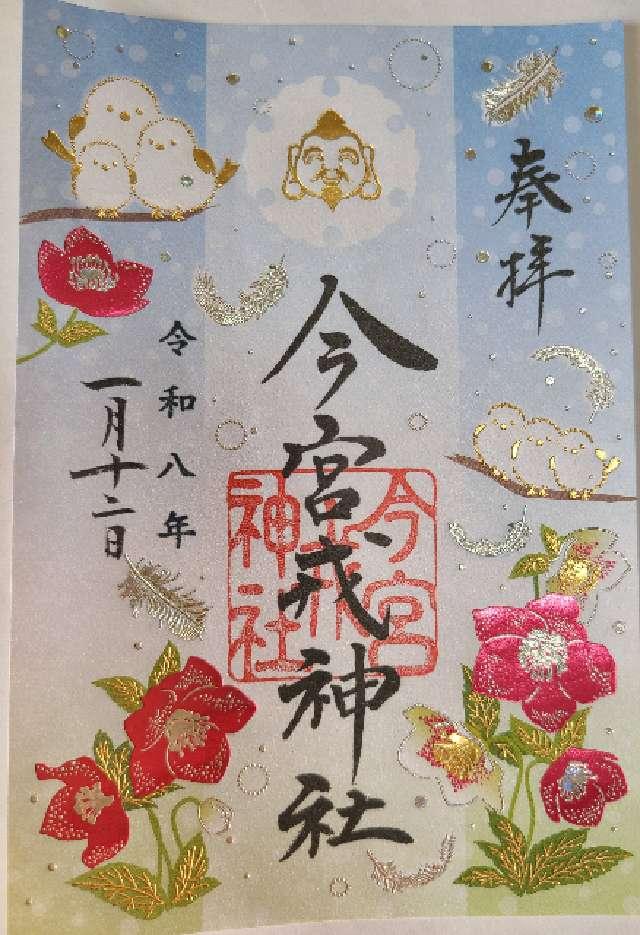 奉拝
今宮戎神社
今宮戎神社
令和八年
一月十二日